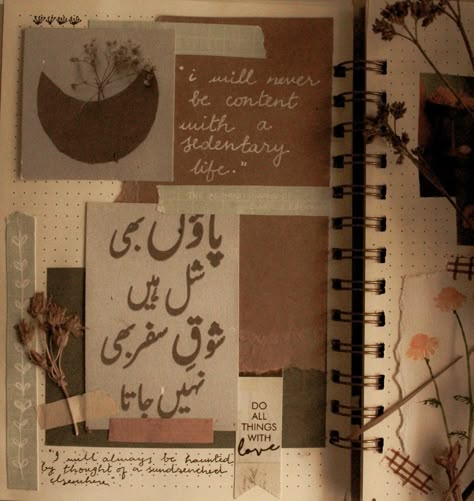 "i will never
be content
with a
sedentary
life."
پاؤں بھی
شل ہیں
شوقِ سفر بھی
نہیں جاتا
DO
ALL
THINGS
WITH
love
"I will always be haunted
by thought of a sundrenched
elsewhere"